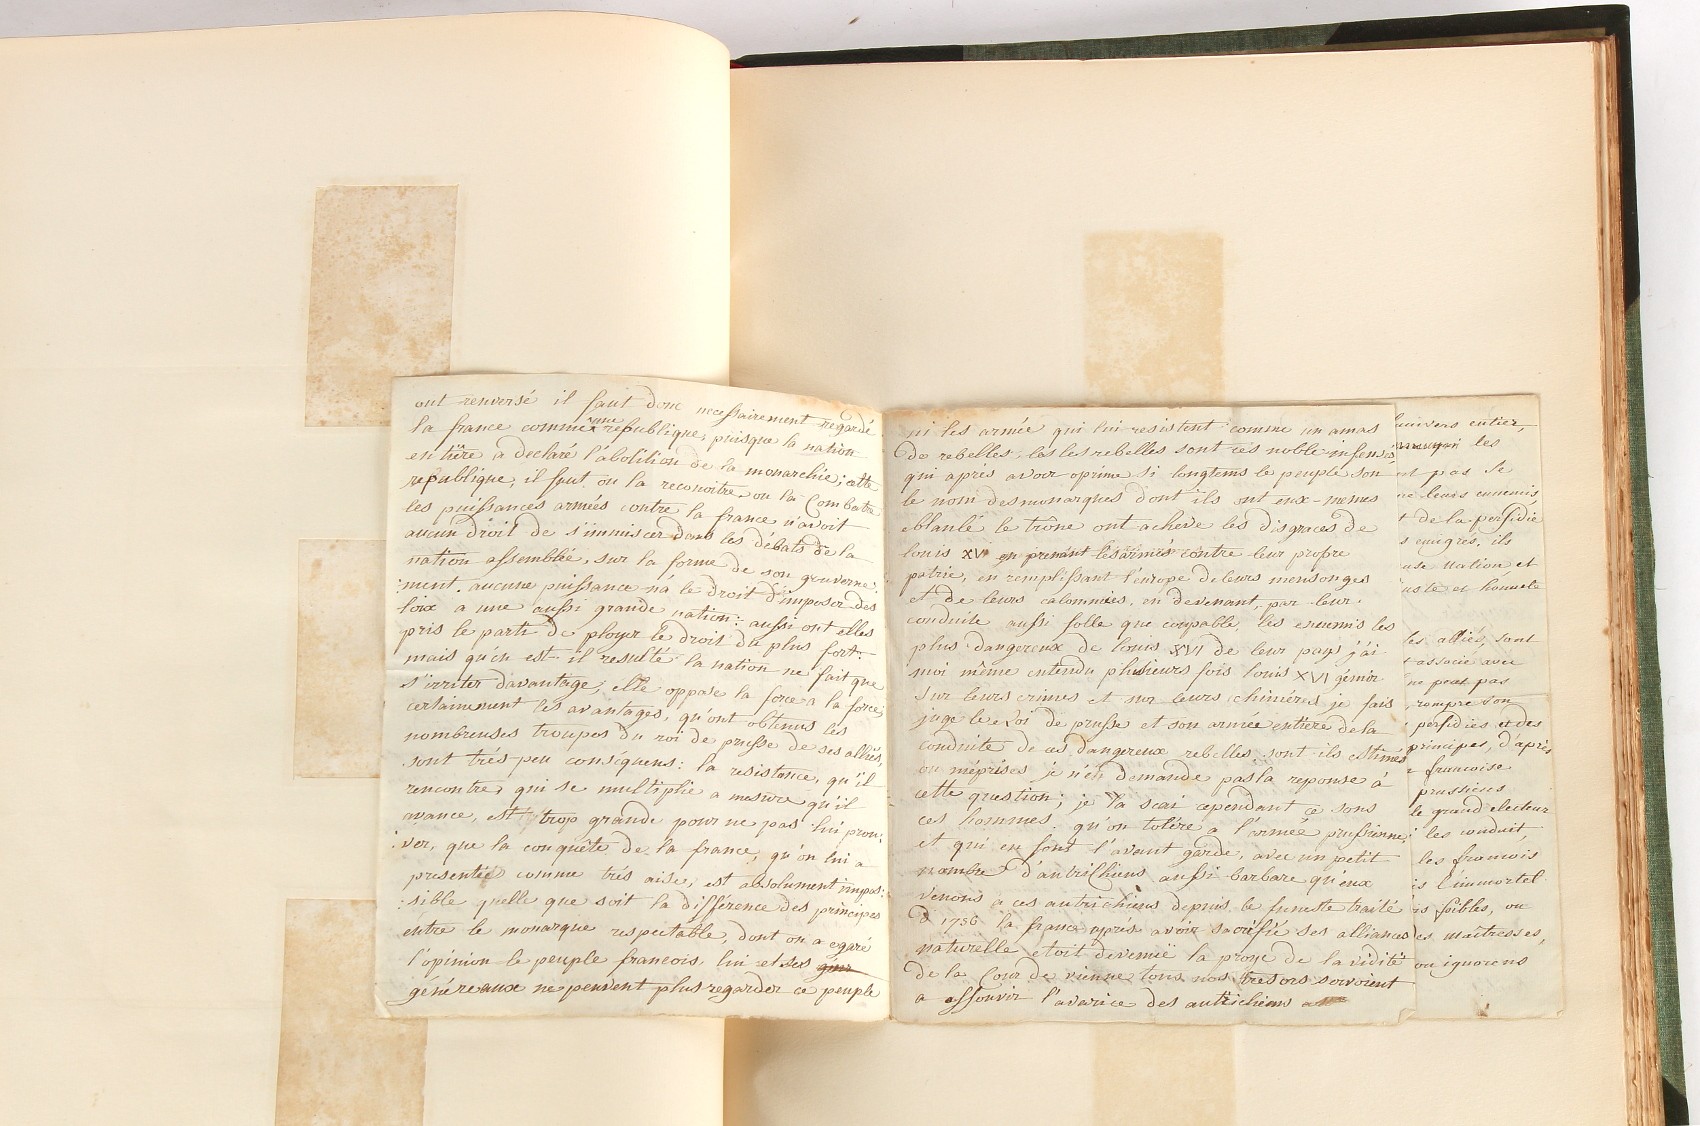 ont renversé il faut donc necessairement regardé
la france comme une republique, puisque la nation
entiere a declaré l'abolition de la monarchie; cette
republique, il faut, ou la reconoitre, ou la Combatre
les puissances armés contre la france n'avoit
aucun droit de s'immiscer dans les débats de la
nation assemblée, sur la forme de son gouverne:
:ment. aucune puissance n'a le droit d'imposer des
loix a une aussi grande nation: aussi ont elles
pris le parti de ployer le droit du plus fort:
mais qu'en est-il resulté la nation ne fait que
s'irriter davantage; elle oppose la force a la force;
certainement les avantages, qu'ont obtenus les
nombreuses troupes du roi de prusse de ses alliés,
sont trés-peu conséquens: la resistance, qu'il
rencontre, qui se multiplie a mesure qu'il
avance, est trop grande pour ne pas lui prou:
:ver, que la conquête de la france, qu'on lui a
presentée comme trés aisé, est absolument impos:
:sible quelle que soit la différence des principes
entre le monarque respectable, dont on a egaré
l'opinion le peuple francois, lui et ses
généreaux ne peuvent plus regarder ce peuple
ni les armée qui lui resistent comme un amas
de rebelles, les rebelles sont ces noble insensés
qui aprés avoir oprimé si longtems le peuple son
le nom des monarques dont ils ont eux-memes
ebranlé le trône ont achevé les disgraces de
louis XVI en prenant les armes contre leur propre
patrie, en remplissant l'europe de leurs mensonges
et de leurs calomnies, en devenant, par leur
conduite aussi folle que coupable, les ennemis les
plus dangereux de louis XVI de leur pays j'ai
moi même entendu plusieurs fois louis XVI gémir
sur leurs crimes et sur leurs chiméres je fais
juge le Roi de prusse et son armée entiere de la
conduite de ces dangereux rebelles sont ils estimés
ou méprisés je n'en demande pas la reponse à
cette question; je la scai cependant ce sons
ces hommes qu'on tolére a l'armée prussienne;
et qui en font l'avant garde, avec un petit
nombre d'autrichiens aussi barbare qu'eux
venons a ces autrichiens depuis le funeste traité
d 1756 la france aprés avoir sacrifié ses alliances
naturelle etoit devenue la proye de la vidité
de la Cour de vienne tous nos tresors servoient
a assouvir l'avarice des autrichiens
univers entier,
les
pas se
leurs ennemis
de la perfidie
emigrés, ils
nation et
et honnete
les alliés, sont
associé avec
ne peut pas
rompre son
perfidies et des
principes, d'aprés
francoise
prussiens
le grand electeur
les conduit,
les francois
l'immortel
foibles, ou
maîtresses,
ou ignorens